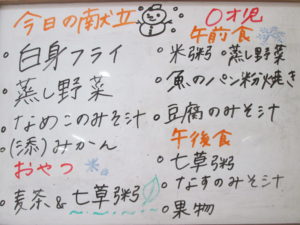 今日の献立
・白身フライ
・蒸し野菜
・なめこのみそ汁
・(添)みかん
おやつ
・麦茶&七草粥
〇才児
午前食
・米粥 ・蒸し野菜
・魚のパン粉焼き
・豆腐のみそ汁
午後食
・七草粥
・なすのみそ汁
・果物